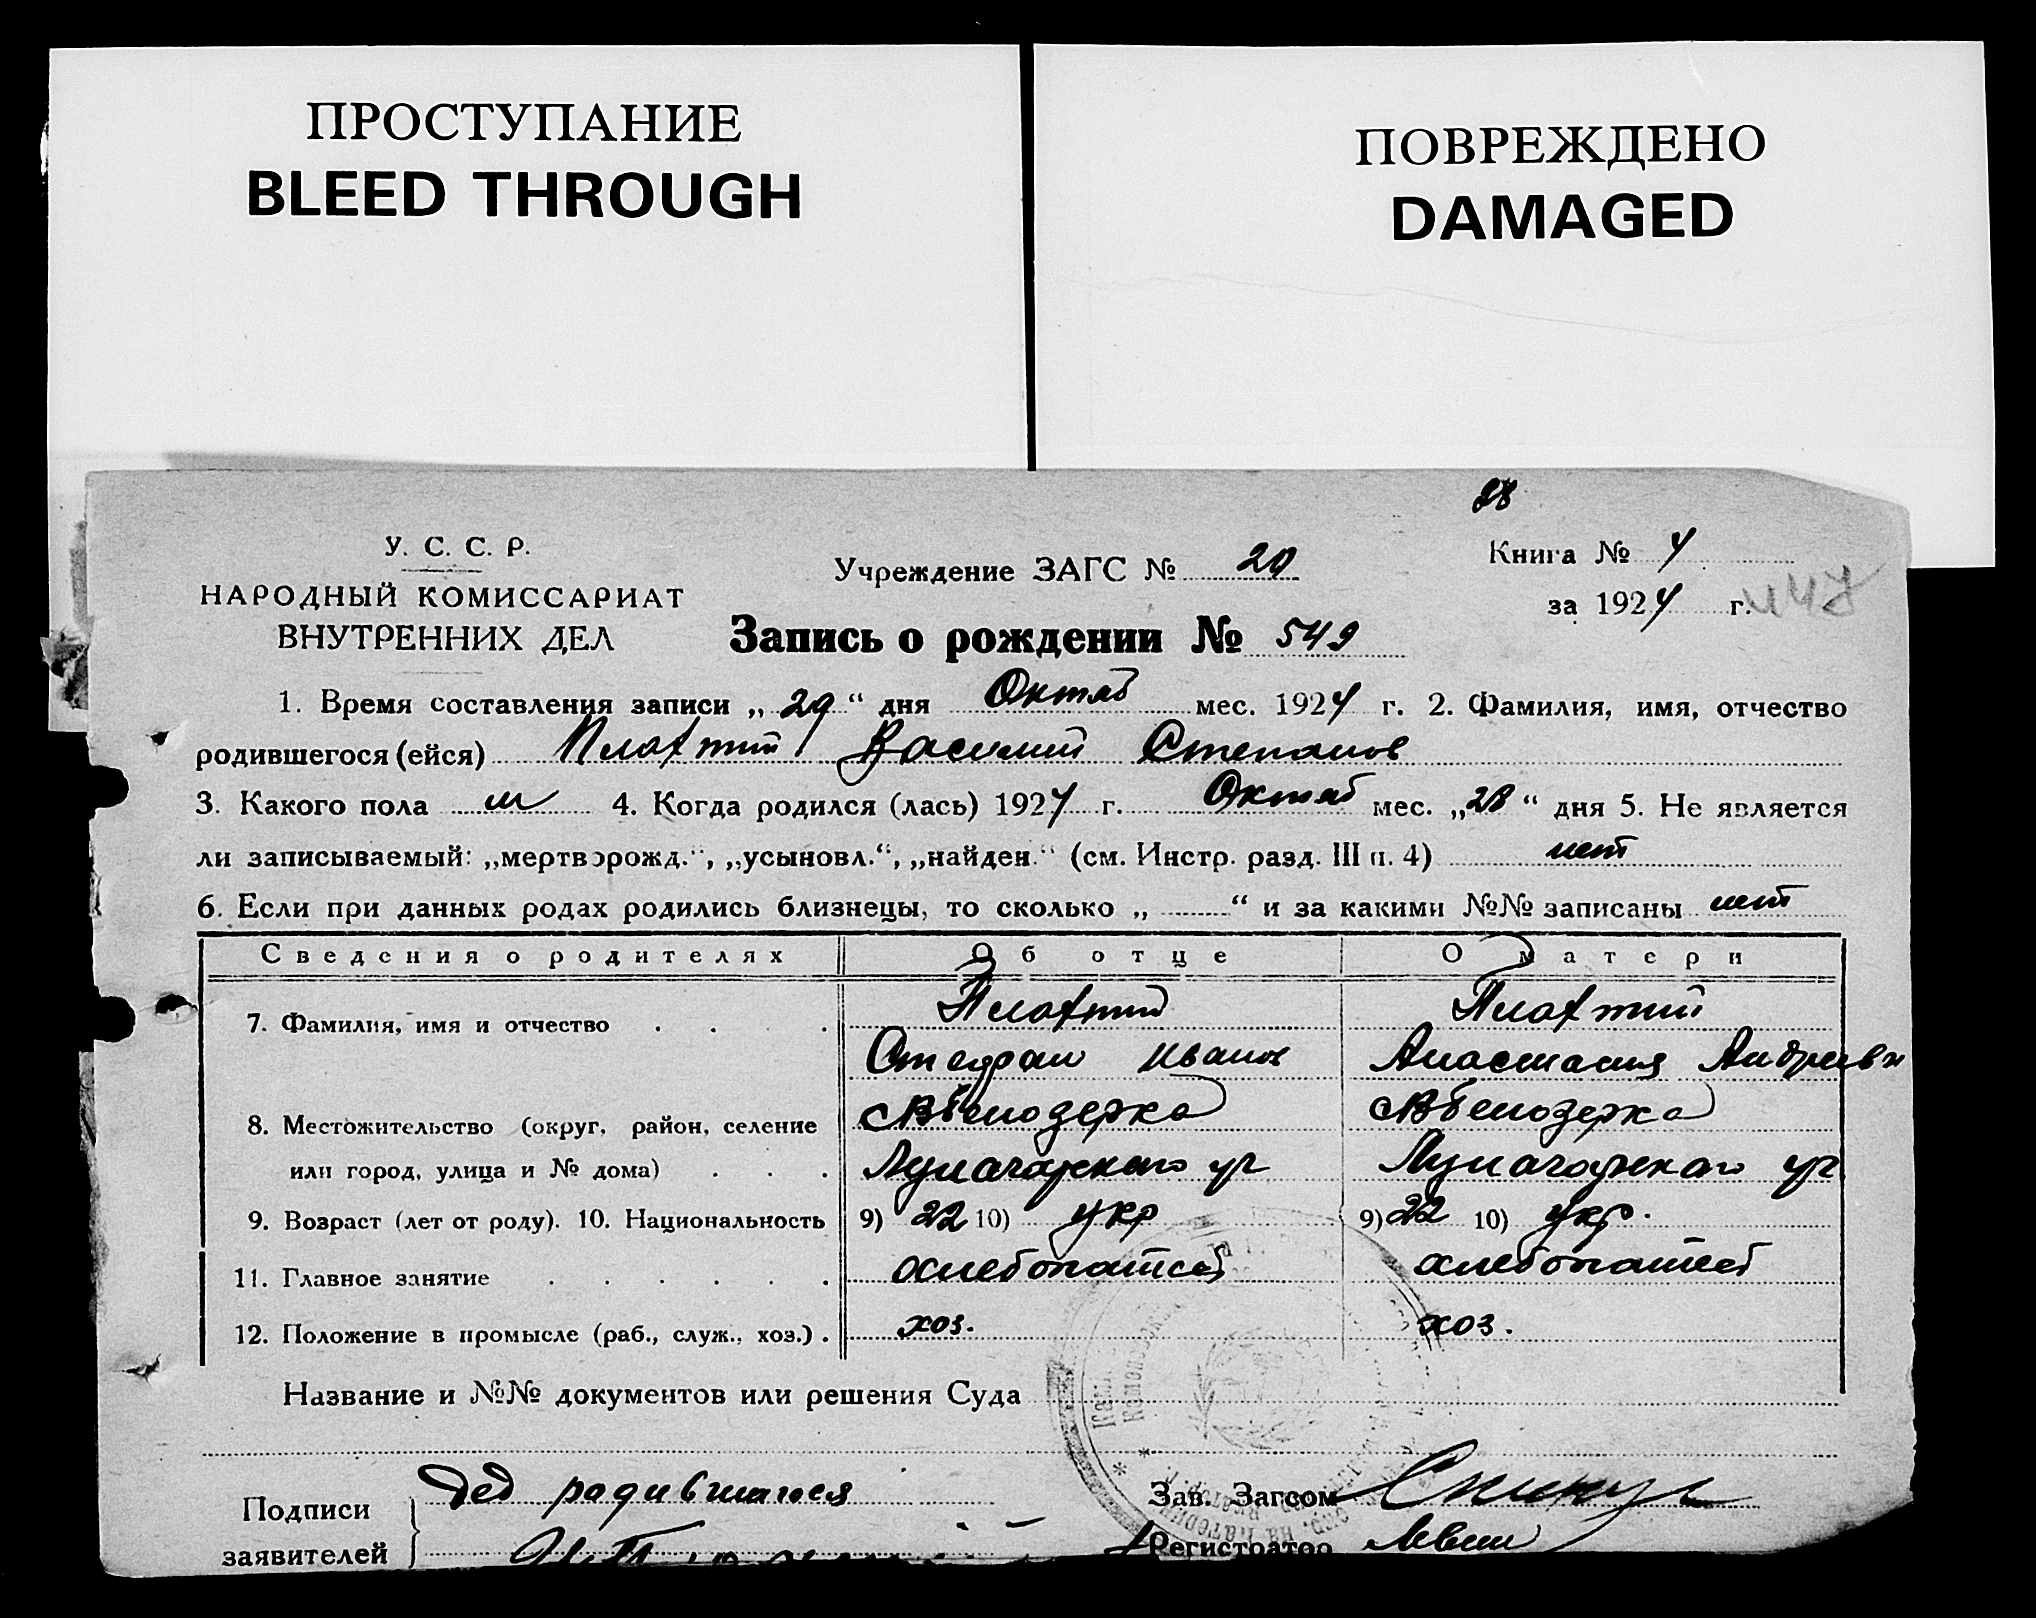 ПРОСТУПАНИЕ
BLEED THROUGH
ПОВРЕЖДЕНО
DAMAGED
У. С. С. Р.
НАРОДНЫЙ КОМИССАРИАТ
ВНУТРЕННИХ ДЕЛ
Учреждение ЗАГС № 20
Книга № 4
за 1924 г.
Запись о рождении № 549
1. Время составления записи „ 29 “ дня Октяб мес. 1924 г. 2. Фамилия, имя, отчество
родившегося (ейся) Плахтий Василий Степанов
3. Какого пола м 4. Когда родился (лась) 1924 г. Октяб мес. „28“ дня 5. Не является
ли записываемый: „мертворожд.“, „усыновл.“, „найден.“ (см. Инстр. разд. III п. 4) нет
6. Если при данных родах родились близнецы, то сколько „ “ и за какими №№ записаны нет
Сведения о родителях Об отце О матери
7. Фамилия, имя и отчество Плахтий Плахтий
Иванов Анастасия Андреевн
8. Местожительство (округ, район, селение Белозерка Белозерка
или город, улица и № дома)
9. Возраст (лет от роду). 10. Национальность 9) 22 10) укр 9) 22 10) укр.
11. Главное занятие хлебопашеб хлебопашеб
12. Положение в промысле (раб., служ., хоз.) . хоз. хоз.
Название и №№ документов или решения Суда
Подписи
заявителей
Дед родившагося
Зав. Загсом
Регистратор